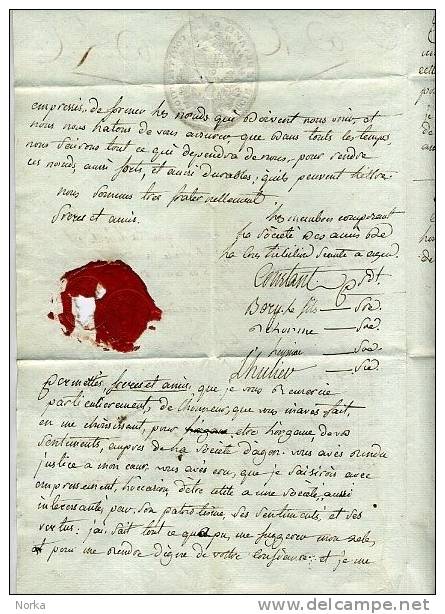 empressés, de former les nœuds qui doivent nous unir, et
nous nous hatons de vous assurer, que dans touts les temps,
nous fairons tout ce qui dependra de nous, pour rendre
ces nœuds, aussi forts, et aussi durables, quils peuvent letre.
nous sommes tres fraternellement
freres et amis.
les membres composant
la société des amis de
la constitution seante a agen
Constant pdt.
Bory fils — Sre
— Sre
— Sre
Lhulier — Sre
permettés, freres et amis, que je vous remercie
particulierement, de lhonneur, que vous mavés fait,
en me choisissant, pour etre lorgane, de vos
sentiments, aupres de la société dagen. vous avés rendu
justice a mon cœur. vous avés cru, que je saisirois avec
empressement, loccasion, detre utile a une société, aussi
interessante, par son patriotisme, ses sentiments, et ses
vertus: jai fait tout ce qua pu, me suggerer mon zele,
et pour me rendre digne de votre confiance: et je me
Norka
delcampe.net